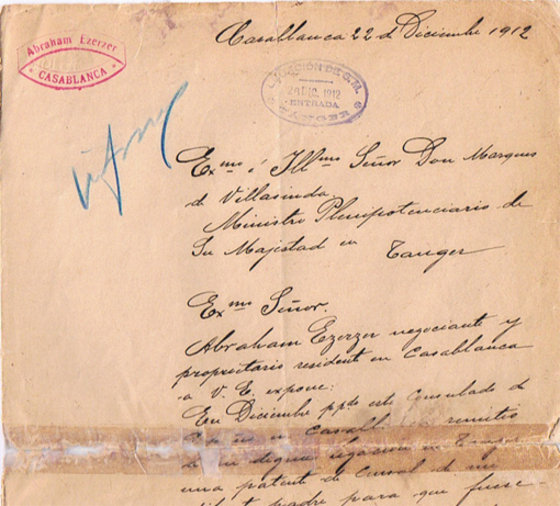 Abraham Ezerzer
CASABLANCA
Casablanca 22 de Diciembre 1912
LEGACIÓN DE S.M.
26 DIC. 1912
ENTRADA
TANGER
Exmo é Illmo Señor Don Marques
de Villasinda
Ministro Plenipotenciario de
Su Majestad en Tanger
Exmo Señor.
Abraham Ezerzer negociante y
proprietario residente en Casablanca
a V. E. expone:
En Diciembre ppdo este Consulado de
en Casablanca remitio
de su digna legacion en Tanger
una patente de de mi
padre para que fuese